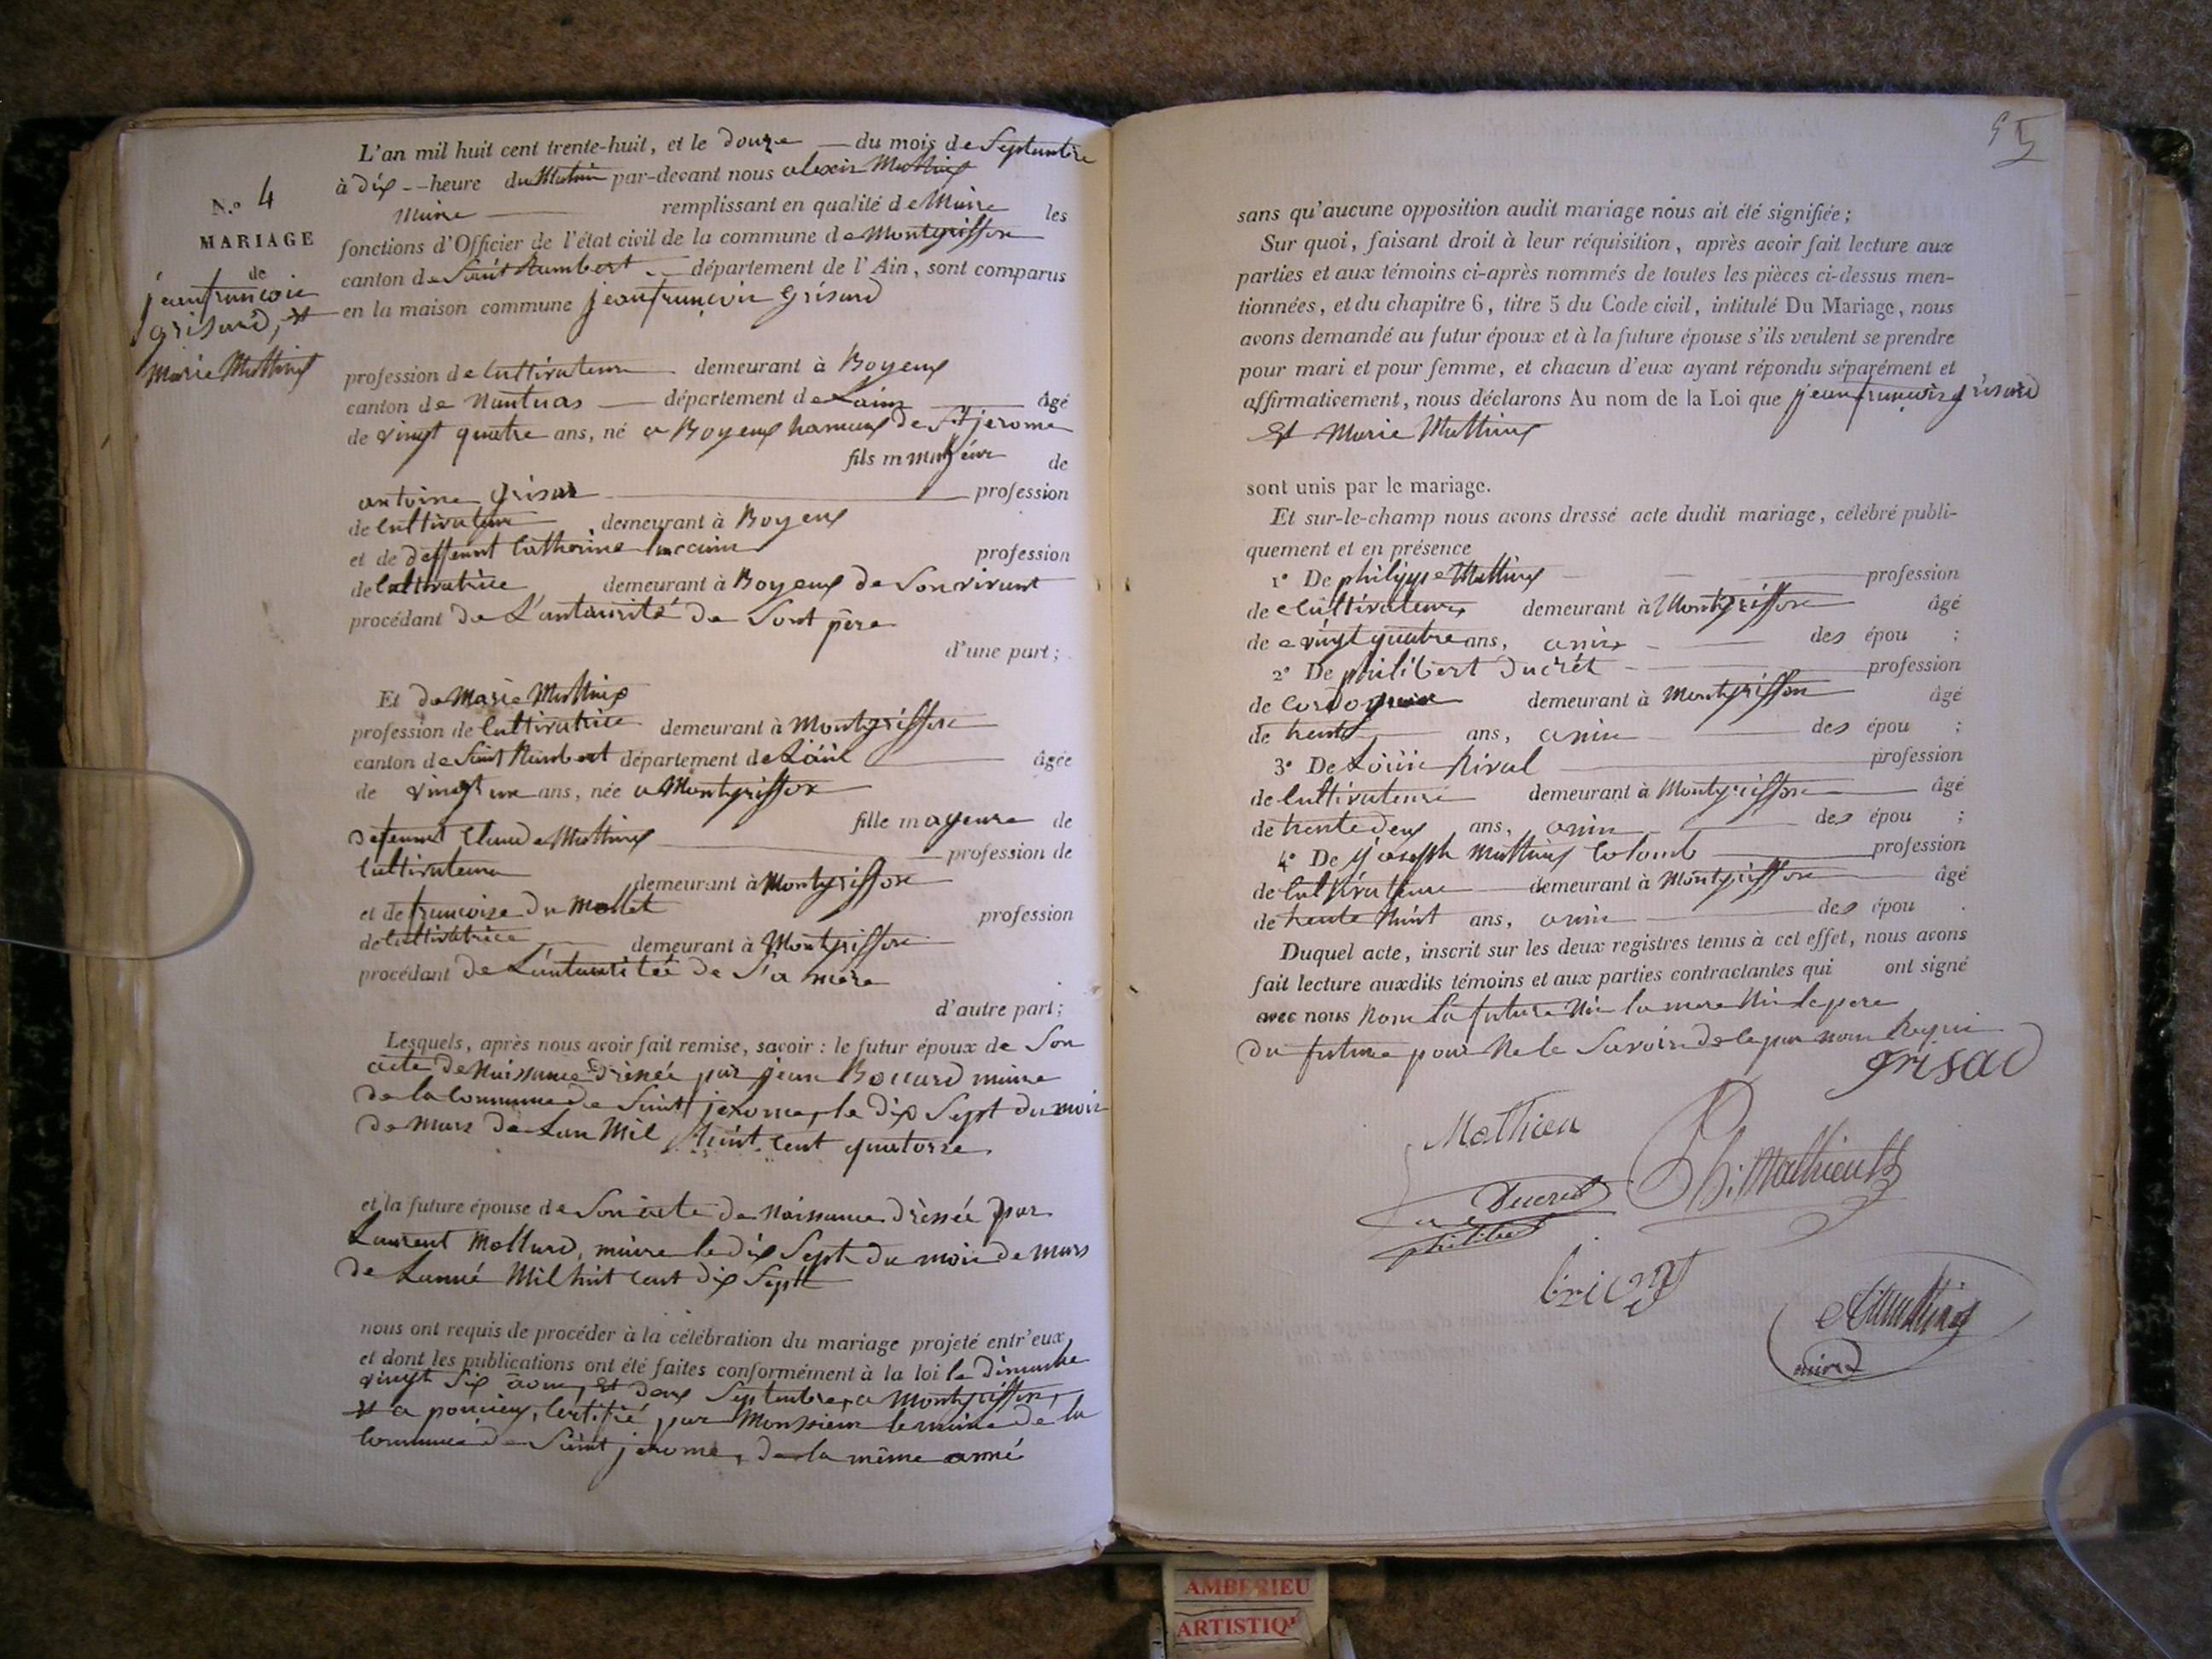 L'an mil huit cent trente-huit, et le douze du mois de Septembre
à dix heure du Matin par-devant nous alexis Mathieu
Maire remplissant en qualité de Maire les
fonctions d'Officier de l'état civil de la commune de Montgriffon
canton de Saint Rambert département de l'Ain, sont comparus
en la maison commune jean françois grisard
N.o 4
MARIAGE
de
jean françois
grisard, et
Marie Mathieu
profession de Cultivateur demeurant à Boyeux
canton de Nantuas département de Lain âgé
de vingt quatre ans, né a Boyeux hameux de St jerome
fils m majeur de
antoine grisar profession
de Cultivateur demeurant à Boyeux
et de deffeunt Catherine profession
de Coltivatrice demeurant à Boyeux de Son vivant
procédant de L'autaurité de Sont père
d'une part ;
Et de Marie Mathieu
profession de Cultivatrice demeurant à Montgriffon
canton de Saint Rambert département de L'ain âgée
de vingt un ans, née a Montgriffon
fille mayeure de
defeunt Claude Mathieu profession de
Cultivateur demeurant à Montgriffon
et de françoise du Mollet profession
de Cultivatrice demeurant à Montgriffon
procédant de L'autauritée de Sa mère
d'autre part ;
Lesquels, après nous avoir fait remise, savoir : le futur époux de Son
acte de Naissance dressée par jean Bouard maire
de la Commune de Saint jerome, le dix Sept du mois
de Mars de Lan Mil huit Cent quatorze
et la future épouse de Son acte de Naissance dressée par
Laurent Mollard, maire le dix Sept du mois de Mars
de Lanné Mil huit Cent dix Sept
nous ont requis de procéder à la célébration du mariage projeté entr'eux,
et dont les publications ont été faites conformément à la loi le Dimanche
vingt Six aout, et deux Septembre, a Montgriffon,
et a poncieux, Certifié par Monssieur le maire de la
Commune de Saint jerome, de la même anné
sans qu'aucune opposition audit mariage nous ait été signifiée ;
Sur quoi, faisant droit à leur réquisition, après avoir fait lecture aux
parties et aux témoins ci-après nommés de toutes les pièces ci-dessus men-
tionnées, et du chapitre 6, titre 5 du Code civil, intitulé Du Mariage, nous
avons demandé au futur époux et à la future épouse s'ils veulent se prendre
pour mari et pour femme, et chacun d'eux ayant répondu séparément et
affirmativement, nous déclarons Au nom de la Loi que jean françois grisard
Et Marie Mathieu
sont unis par le mariage.
Et sur-le-champ nous avons dressé acte dudit mariage, célébré publi-
quement et en présence
1° De philippe Mathieu profession
de Cultivateur demeurant à Montgriffon âgé
de vingt quatre ans, amis des épou ;
2° De philibert Ducrét profession
de Cordonnier demeurant à Montgriffon âgé
de trente ans, amis des épou ;
3° De Loüis Rival profession
de Cultivateur demeurant à Montgriffon âgé
de trente deux ans, amis des épou ;
4° De joseph Mathieu Colomb profession
de Cultivateur demeurant à Montgriffon âgé
de trente huit ans, amis des épou .
Duquel acte, inscrit sur les deux registres tenus à cet effet, nous avons
fait lecture auxdits témoins et aux parties contractantes qui ont signé
avec nous Nom la future Ni la mere Ni le pere
du future pour Ne le Savoir de le par nous Requi
grisad
Mathieu
Ph. Mathieu
Ducret
philibet
Mathieu
maire
AMBERIEU
ARTISTIQU